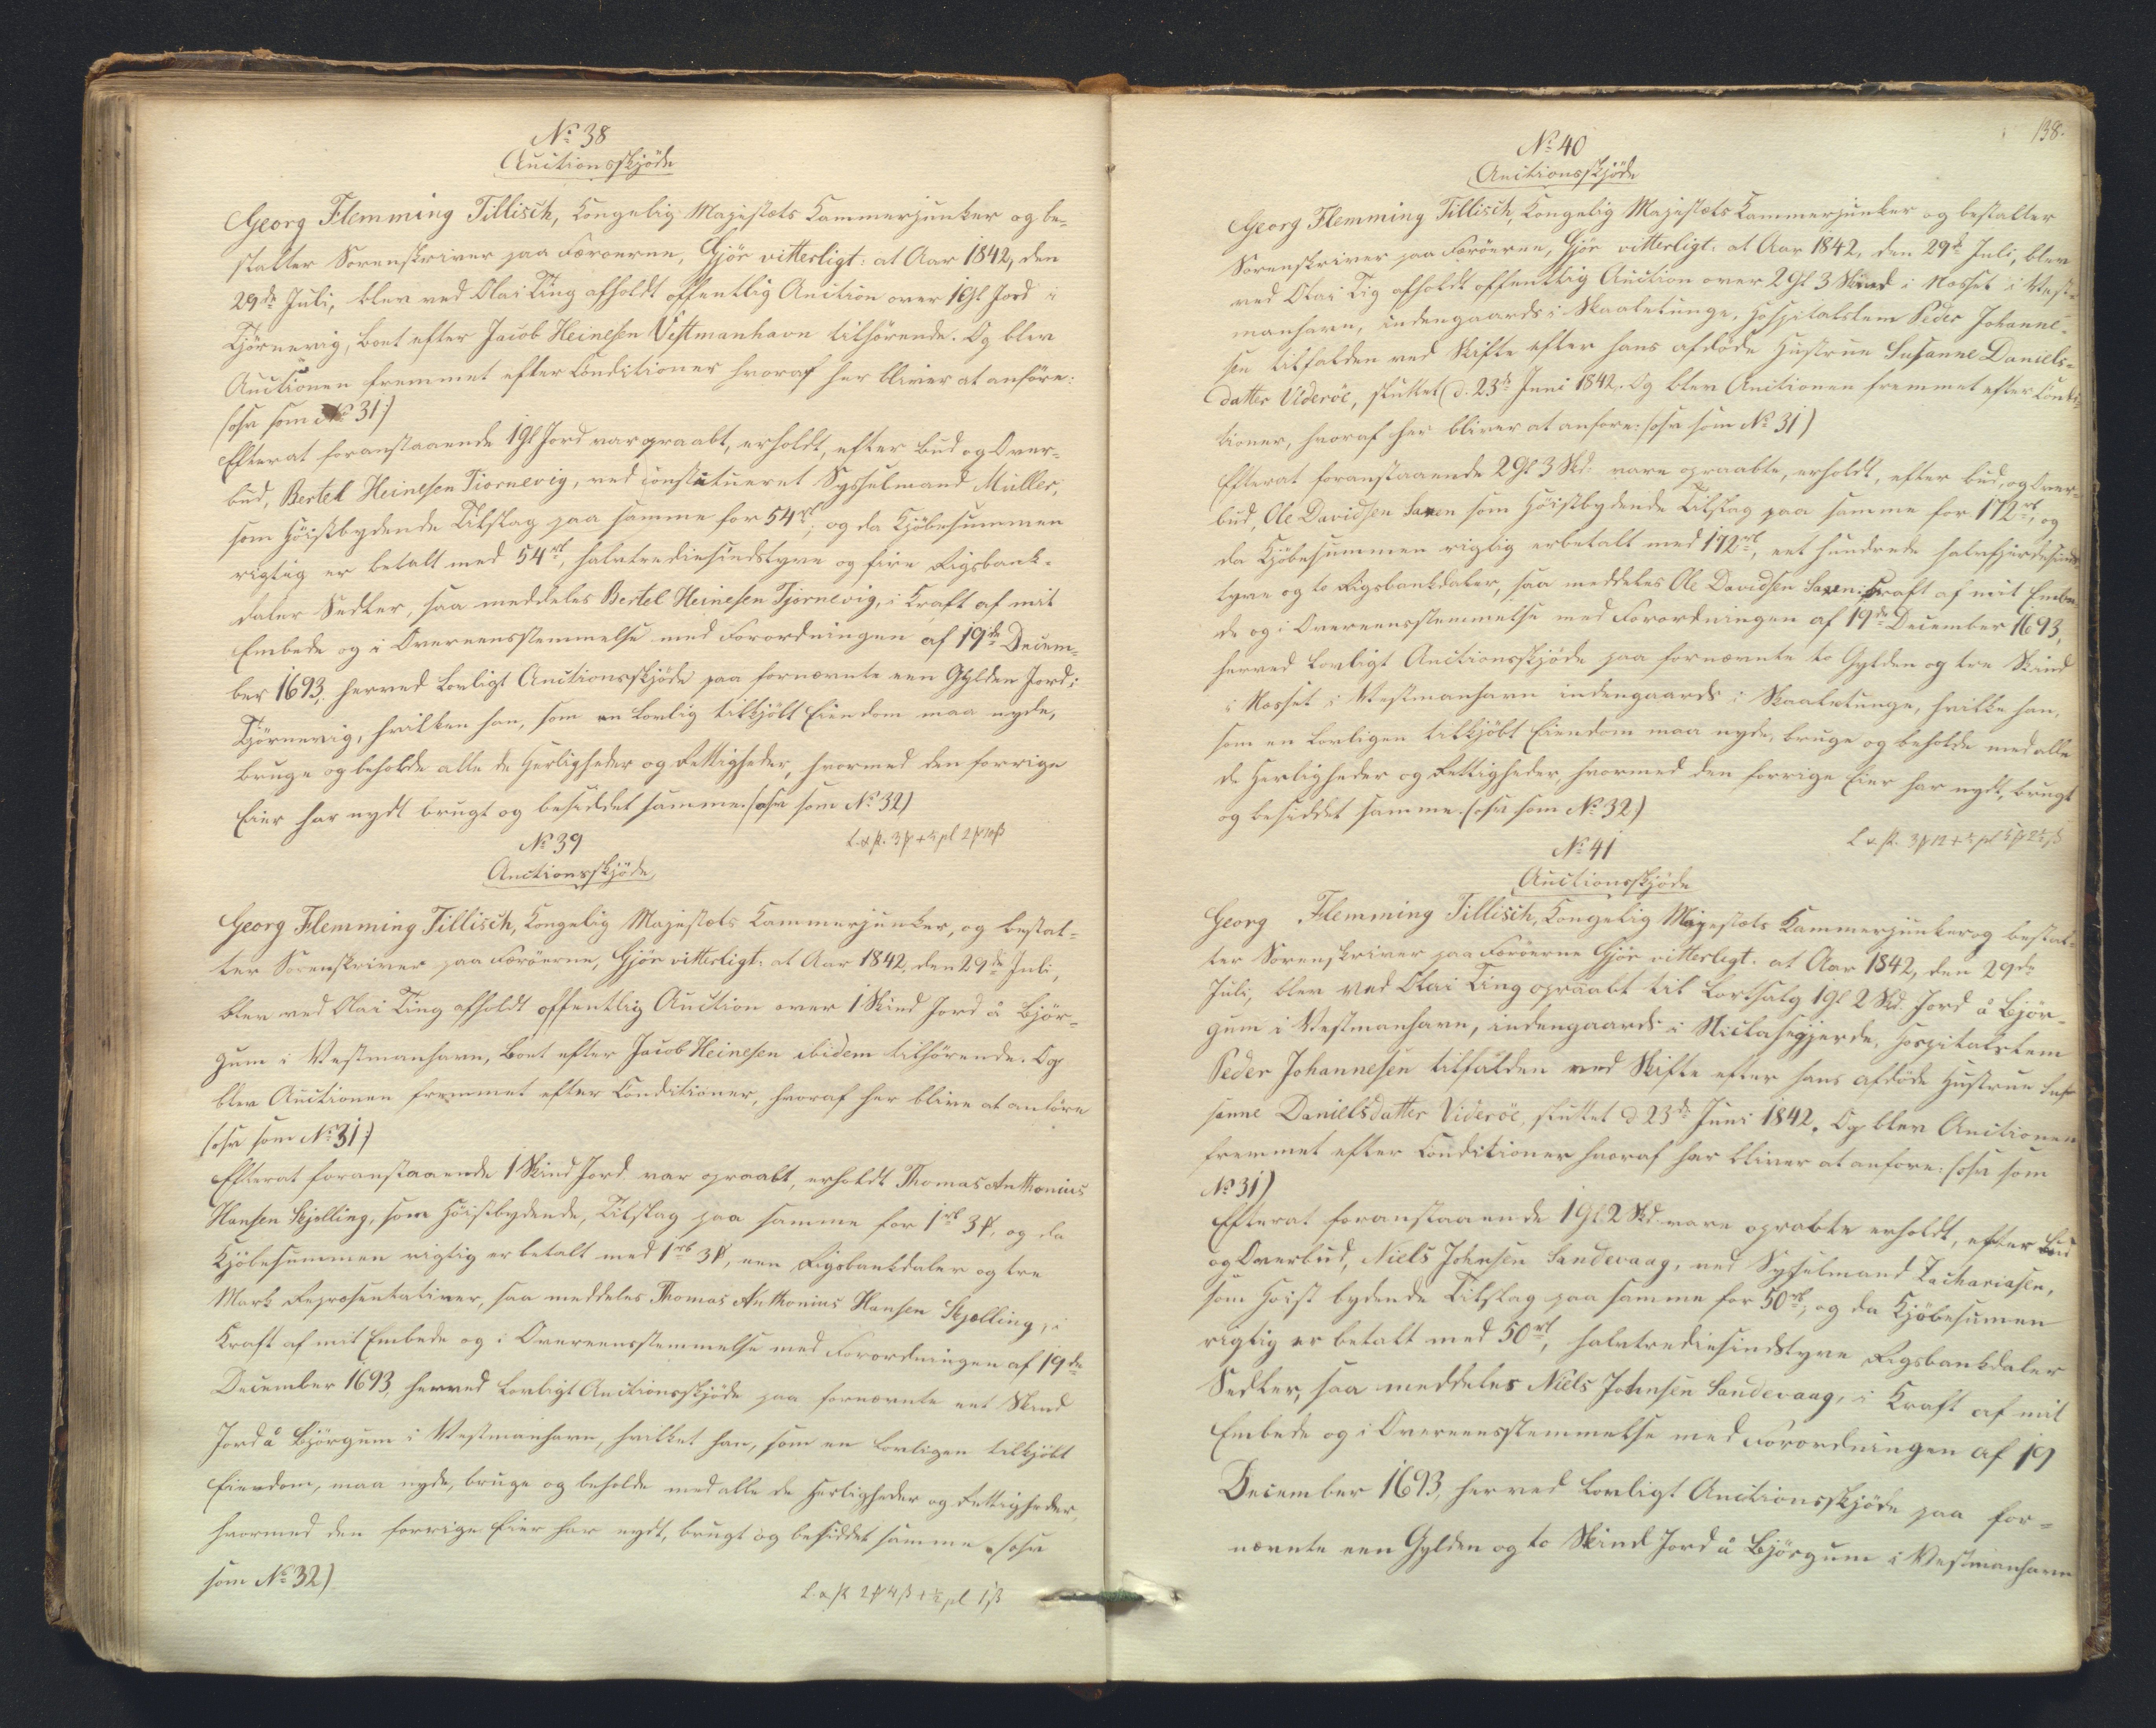 No 38
Auctionsskjöde
Georg Flemming Tillisch, Kongelig Majestæts Kammerjunker og be-
stalter Sorenskriver paa Færoerne, Gjör vitterligt: at Aar 1842, den
29de Juli, blev ved Olai Ting afholdt offentlig Auction over 1 Gl Jord i
Tjörnevig, Boet efter Jacob Heinesen Vestmanhavn tilhörende. Og blev
Auctionen fremmet efter Conditioner hvoraf her bliver at anföre:
(osv som No 31)
Efterat foranstaaende 1 Gl Jord var opraabt, erholdt, efter Bud og Over-
bud, Bertel Heinesen Tiornevig, ved constitueret Sysselmand Müller,
som Höistbydende Tilslag paa samme for 54 rb, og da Kjöbesummen
rigtig er betalt med 54 rb, halvtrediesindstyve og fire Rigsbank-
daler Sedler, saa meddeles Bertel Heinesen Tjörnevig, i Kraft af mit
Embede og i Overeensstemmelse med Forordningen af 19de Decem-
ber 1693, herved lovligt Auctionsskjöde paa fornævnte een Gylden Jord i
Tjörnevig, hvilken han, som en lovlig tilkjöbt Eiendom maa nyde,
bruge og beholde alle de Herligheder og Rettigheder, hvormed den forrige
Eier har nydt brugt og besiddet samme. (osv som No 32)
No 39
Auctionsskjöde
Georg Flemming Tillisch, Kongelig Majestæts Kammerjunker, og bestal-
ter Sorenskriver paa Færöerne, Gjör vitterligt: at Aar 1842, den 29de Juli,
blev ved Olai Ting afholdt offentlig Auction over 1 Skind Jord å Björ-
gum i Vestmanhavn, Boet efter Jacob Heinesen ibidem tilhörende. Og
blev Auctionen fremmet efter Conditioner, hvoraf her blive at anföre
(osv som No 31)
Efterat foranstaaende 1 Skind Jord var opraabt, erholdt Thomas Anthonius
Hansen Skjelling, som Höistbydende, Tilslag paa samme for 1 rb 3 ꝟ, og da
Kjöbesummen rigtig er betalt med 1 rb 3 ꝟ, een Rigsbankdaler og tre
Mark Repræsentativer, saa meddeles Thomas Anthonius Hansen Skjelling, i
Kraft af mit Embede og i Overeensstemmelse med Forordningen af 19de
December 1693, herved lovligt Auctionsskjöde paa fornævnte eet Skind
Jord å Björgum i Vestmanhavn, hvilket han, som en lovligen tilkjöbt
Eiendom, maa nyde, bruge og beholde med alle de Herligheder og Rettigheder,
hvormed den forrige Eier har nydt, brugt og besiddet samme. (osv
som No 32)
138.
No 40
Auctionsskjöde
Georg Flemming Tillisch, Kongelig Majestæts Kammerjunker og bestalter
Sorenskriver paa Færöerne, Gjör vitterligt: at Aar 1842, den 29de Juli, blev
ved Olai Tig afholdt offentlig Auction over 2 Gl 3 Skind i Nosset i Vest-
manhavn, indengaards i Skaaletunge, Hospitalslem Peder Johanne-
sen tilfalden ved Skifte efter hans afdöde Hustrue Susanne Daniels-
datter Videröe, sluttet d. 23de Juni 1842. Og blev Auctionen fremmet efter Condi-
tioner, hvoraf her bliver at anfore: (osv som No 31)
Efterat foranstaaende 2 Gl 3 Skd. vare opraabte, erholdt, efter Bud og Over-
bud, Ole Davidsen Saxen som Höistbydende Tilslag paa samme for 172 rb, og
da Kjöbesummen rigtig er betalt med 172 rb, eet hundrede halvfjerdesinds-
tyve og to Rigsbankdaler, saa meddeles Ole Davidsen Saxen i Kraft af mit Embe-
de og i Overeensstemmelse med Forordningen af 19de December 1693,
herved lovligt Auctionsskjöde paa fornævnte to Gylden og tre Skind
i Nosset i Vestmanhavn indengaards i Skaaletunge, hvilke han,
som en lovligen tilkjöbt Eiendom maa nyde, bruge og beholde med alle
de Herligheder og Rettigheder hvormed den forrige Eier har nydt, brugt
og besiddet samme. (osv som No 32.)
No 41
Auctionsskjöde
Georg Flemming Tillisch, Kongelig Majestæts Kammerjunker og bestal-
ter Sorenskriver paa Færöerne Gjör vitterligt: at Aar 1842, den 29de
Juli, blev ved Olai Ting opraabt til Bortsalg 1 Gl 2 Skd. Jord å Björ-
gum i Vestmanhavn, indengaards i Niclasegjerde, Hospitalslem
Peder Johannesen tilfalden ved Skifte efter hans afdöde Hustrue Su-
sanne Danielsdatter Videröe, sluttet d 23de Juni 1842. Og blev Auctionen
fremmet efter Conditioner hvoraf her bliver at anfore: (osv som
No 31)
Efterat foranstaaende 1 Gl 2 Skd. vare oprabte erholdt, efter Bud
og Overbud, Niels Johnsen Sandevaag, ved Sysselmand Zachariasen,
som Hoist bydende Tilslag paa samme for 50 rb, og da Kjöbesumen
rigtig er betalt med 50 rb, halvtrediesindstyve Rigsbankdaler
Sedler, saa meddeles Niels Johnsen Sandevaag, i Kraft af mit
Embede og i Overeensstemmelse med Forordningen af 19
December 1693, herved lovligt Auctionsskjöde paa for-
nævnte een Gylden og to Skind Jord å Björgum i Vestmanhavn